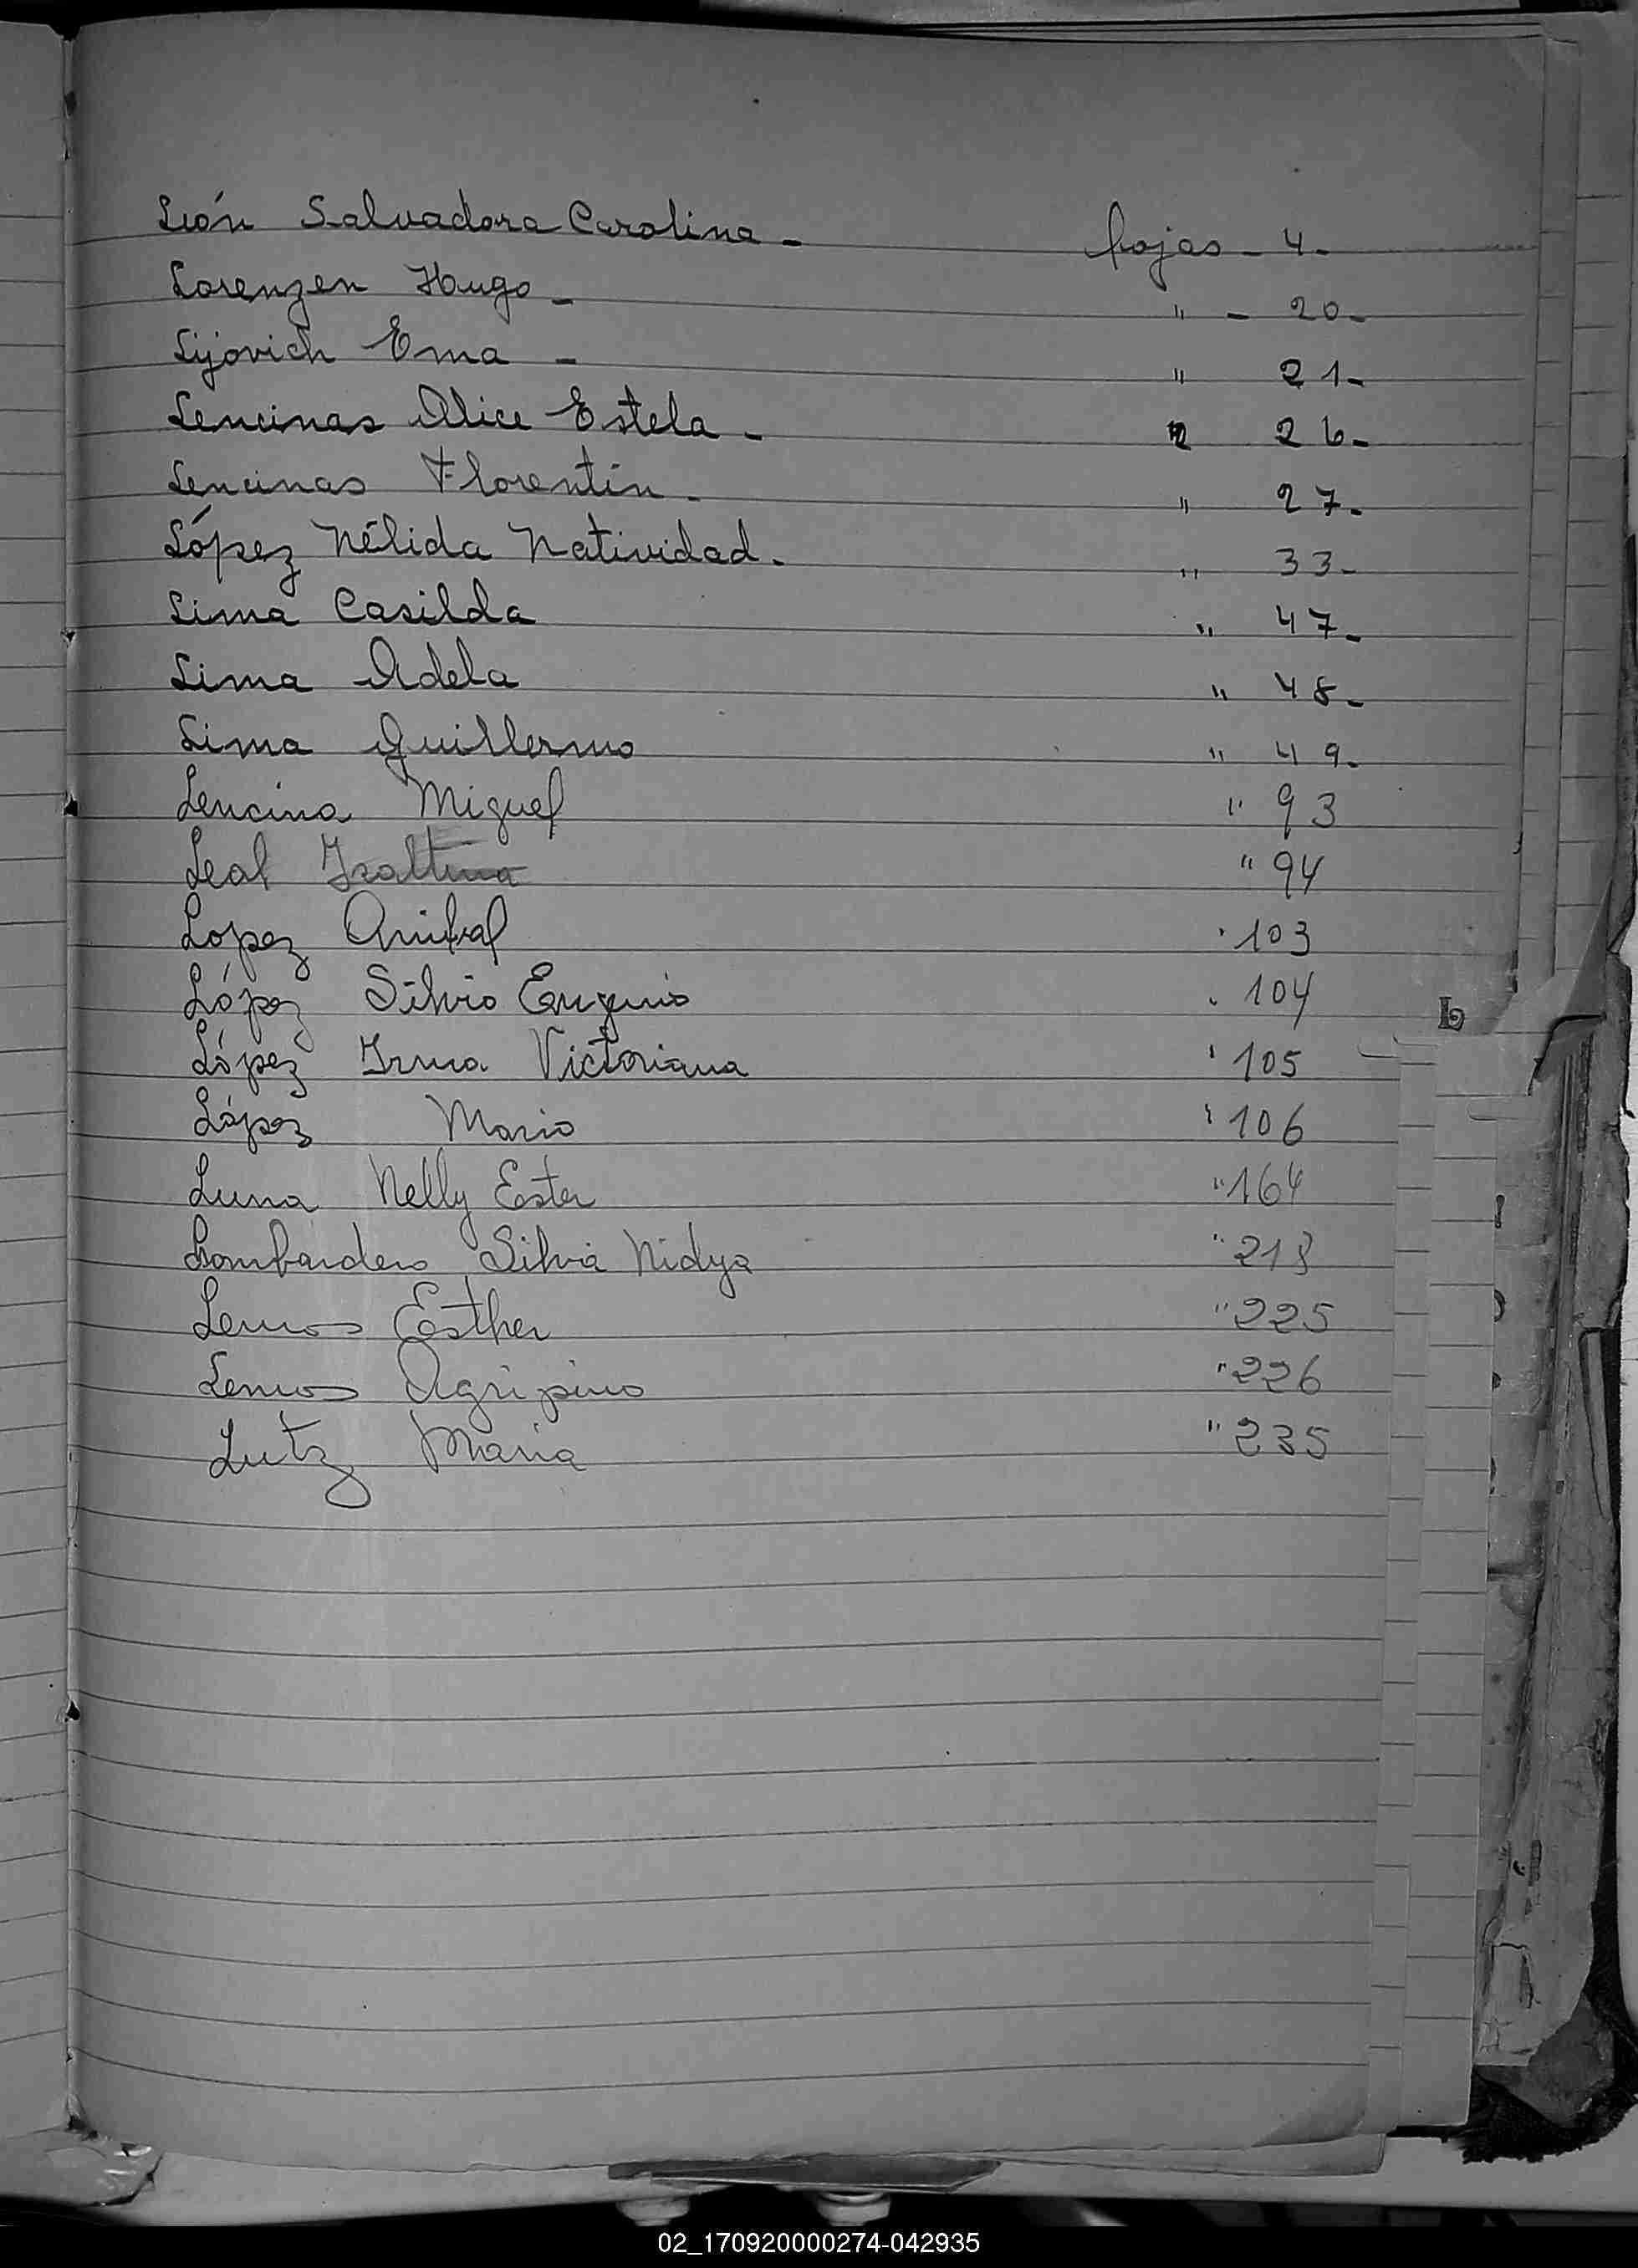 León Salvadora Carolina - hojas - 4 -
Lorenzen Hugo - " - 20 -
Lijovich Ema - " 21 -
Lencinas Alice Estela - " 26 -
Lencinas Florentín - " 27 -
López Nélida Natividad - " 33 -
Lima Casilda " 47 -
Lima Adela " 48 -
Lima Guillermo " 49 -
Lencina Miguel " 93
Leal Isaltina " 94
Lopez Anibal " 103
López Silvio Eugenio " 104
López Irma Victoriana " 105
López Mario " 106
Luna Nelly Ester " 164
Lombardero Silvia Nidya " 218
Lemos Esther " 225
Lemos Agripino " 226
Lutz Maria " 235
02_170920000274-042935